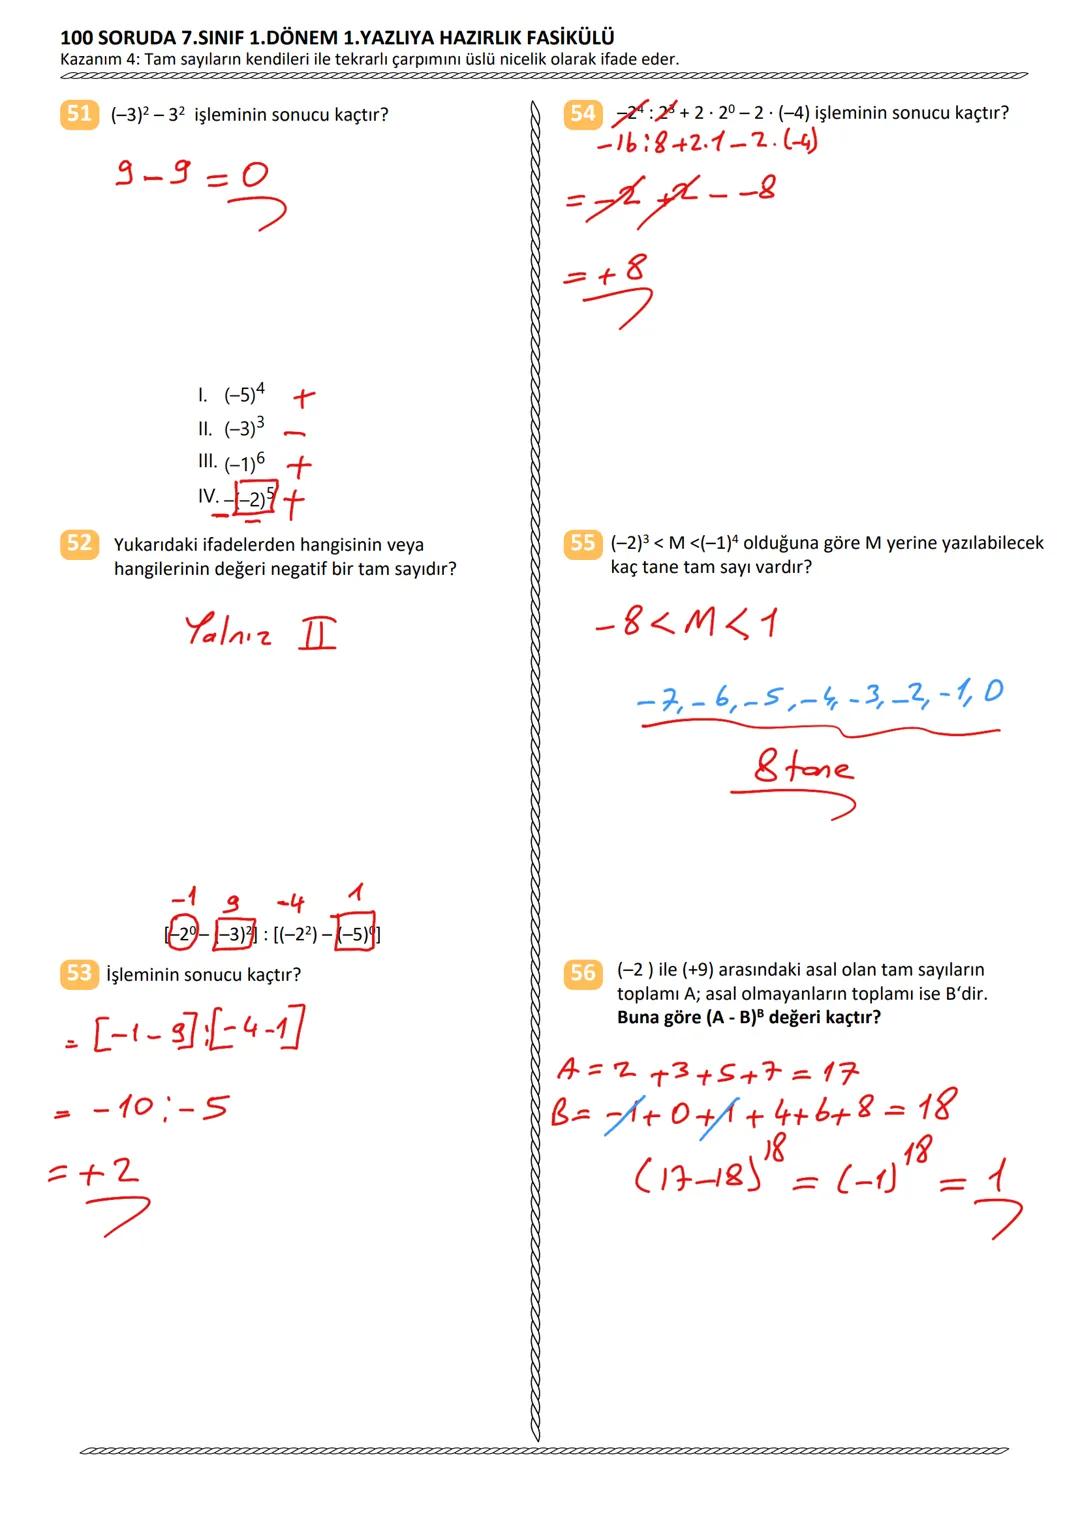 100 SORUDA 7.SINIF 1.DÖNEM 1.YAZLIYA HAZIRLIK FASİKÜLÜ
Kazanım 4: Tam sayıların kendileri ile tekrarlı çarpımını üslü nicelik olarak ifade eder.
51 (–3)² – 3² işleminin sonucu kaçtır?
9 - 9 = 0
I. (–5)⁴ +
II. (–3)³ –
III. (–1)⁶ +
IV. –(–2)⁵ +
52 Yukarıdaki ifadelerden hangisinin veya
hangilerinin değeri negatif bir tam sayıdır?
Yalnız II
-1 9 -4 1
[–2⁰ – (–3)²] : [(–2²) – (–5)⁰]
53 İşleminin sonucu kaçtır?
= [-1-9]:[-4-1]
= -10:-5
= +2
54 –2⁴ : 2³ + 2 · 2⁰ – 2 · (–4) işleminin sonucu kaçtır?
-16:8+2.1-2.(-4)
= -2 +2 - -8
= +8
55 (–2)³ < M <(–1)⁴ olduğuna göre M yerine yazılabilecek
kaç tane tam sayı vardır?
-8<M<1
-7,-6,-5,-4,-3,-2,-1,0
8 tane
56 (–2 ) ile (+9) arasındaki asal olan tam sayıların
toplamı A; asal olmayanların toplamı ise B‘dir.
Buna göre (A - B)ᴮ değeri kaçtır?
A = 2 +3+5+7 = 17
B = -1+0+1+4+6+8 = 18
(17-18)¹⁸ = (-1)¹⁸ = 1